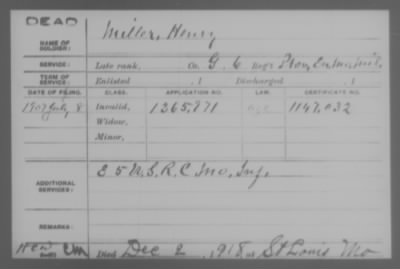 DEAD
NAME OF SOLDIER: Miller, Henry
SERVICE: Late rank, Co. G. 6 Reg't Prov. En. Mo. Mil.
TERM OF SERVICE: Enlisted , 1 Discharged , 1
DATE OF FILING. CLASS. APPLICATION NO. LAW. CERTIFICATE NO.
1907 July 8 Invalid, 1365,871 1147,032
Widow,
Minor,
ADDITIONAL SERVICES: E 5 U.S.R.C. Mo. Inf.
REMARKS:
Died Dec 2, 1918, at St Louis Mo